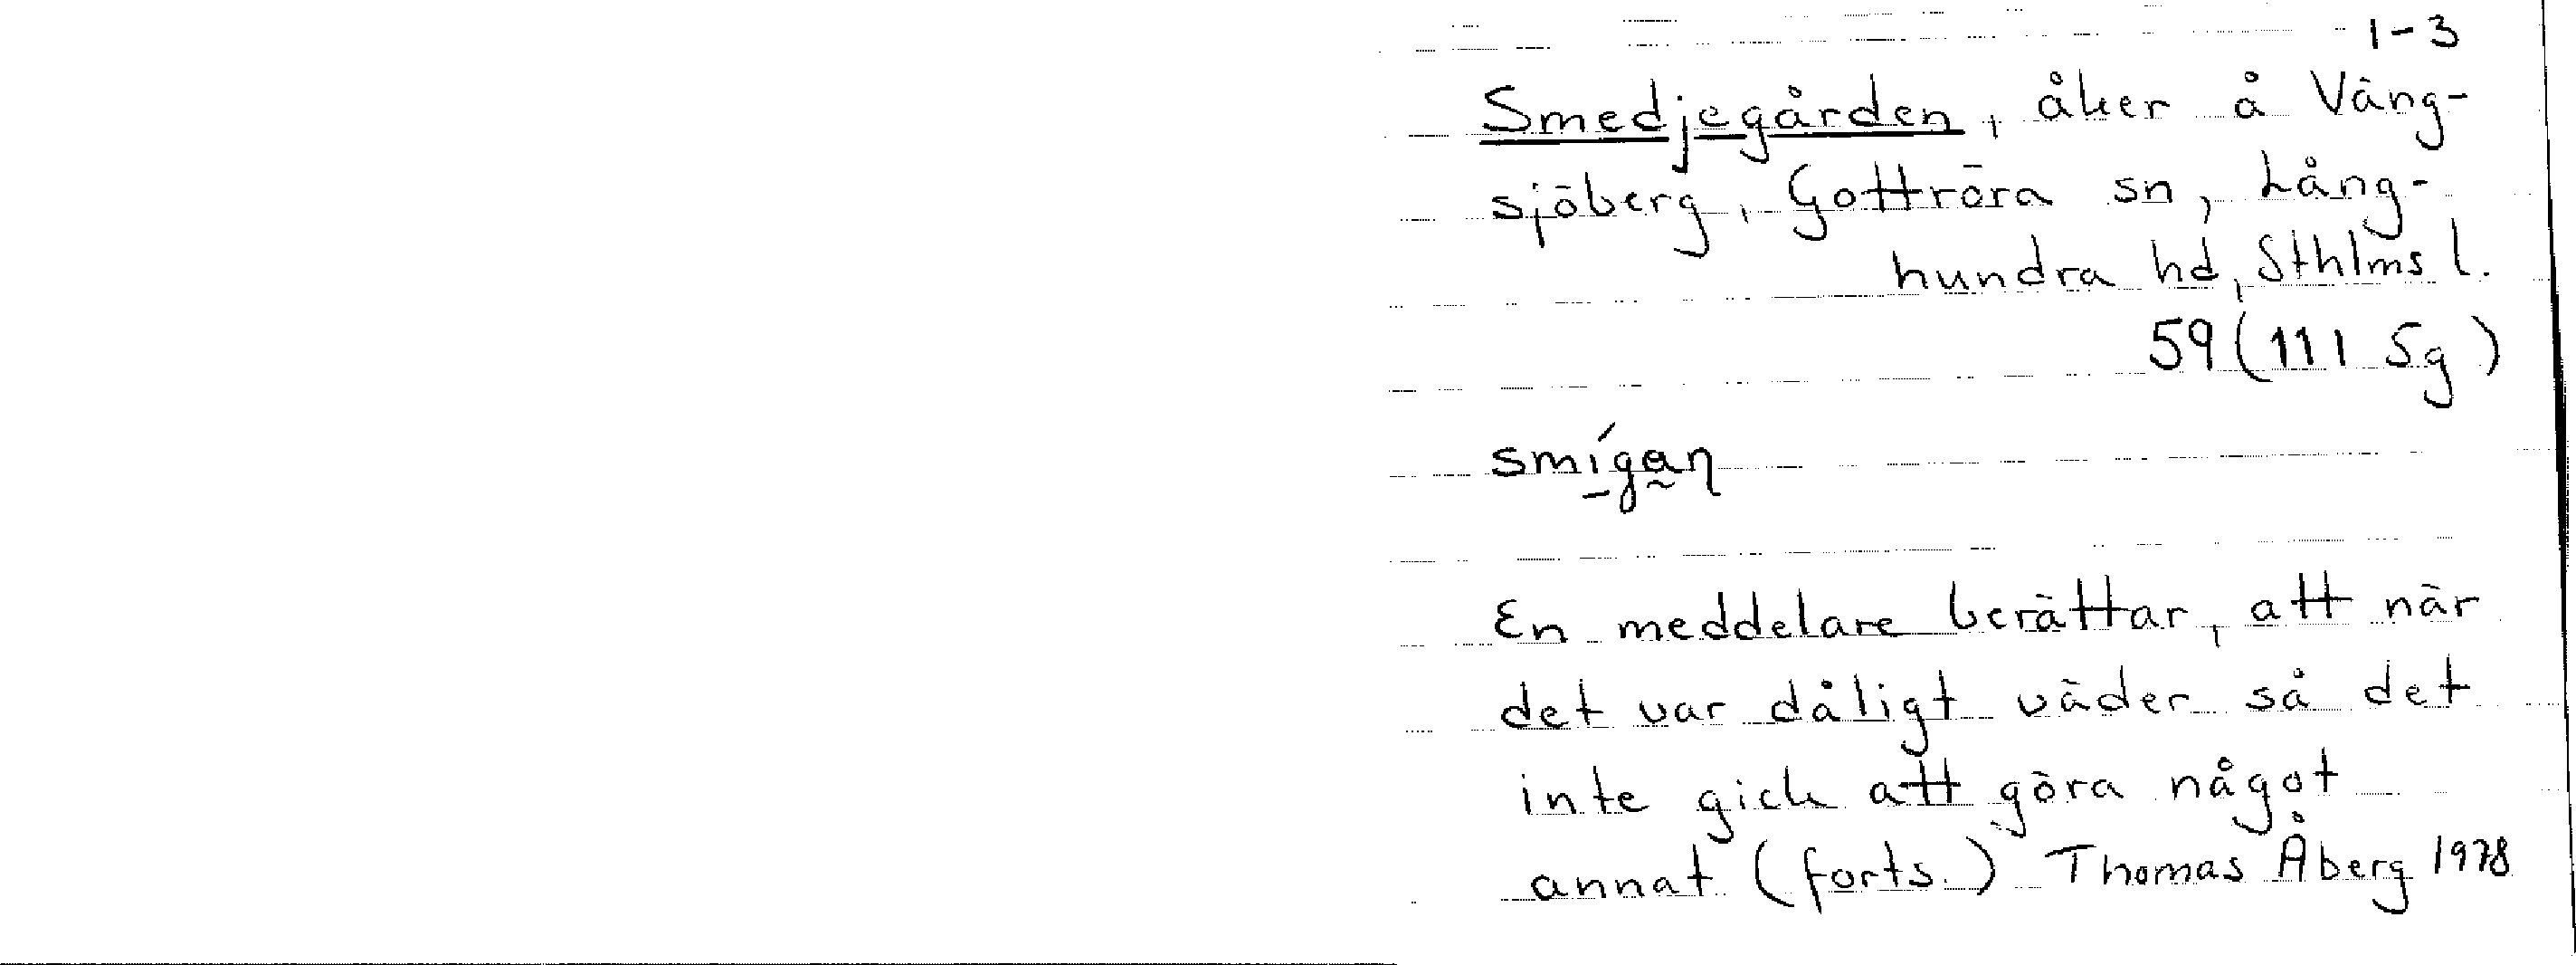 1-3
Smedjegården, åker å Väng-
sjöberg, Gottröra sn, Lång-
hundra hd, Sthlms l.
59 (111 Sg)
smígan
En meddelare berättar, att när
det var dåligt väder så det
inte gick att göra något
annat (forts.) Thomas Åberg 1978